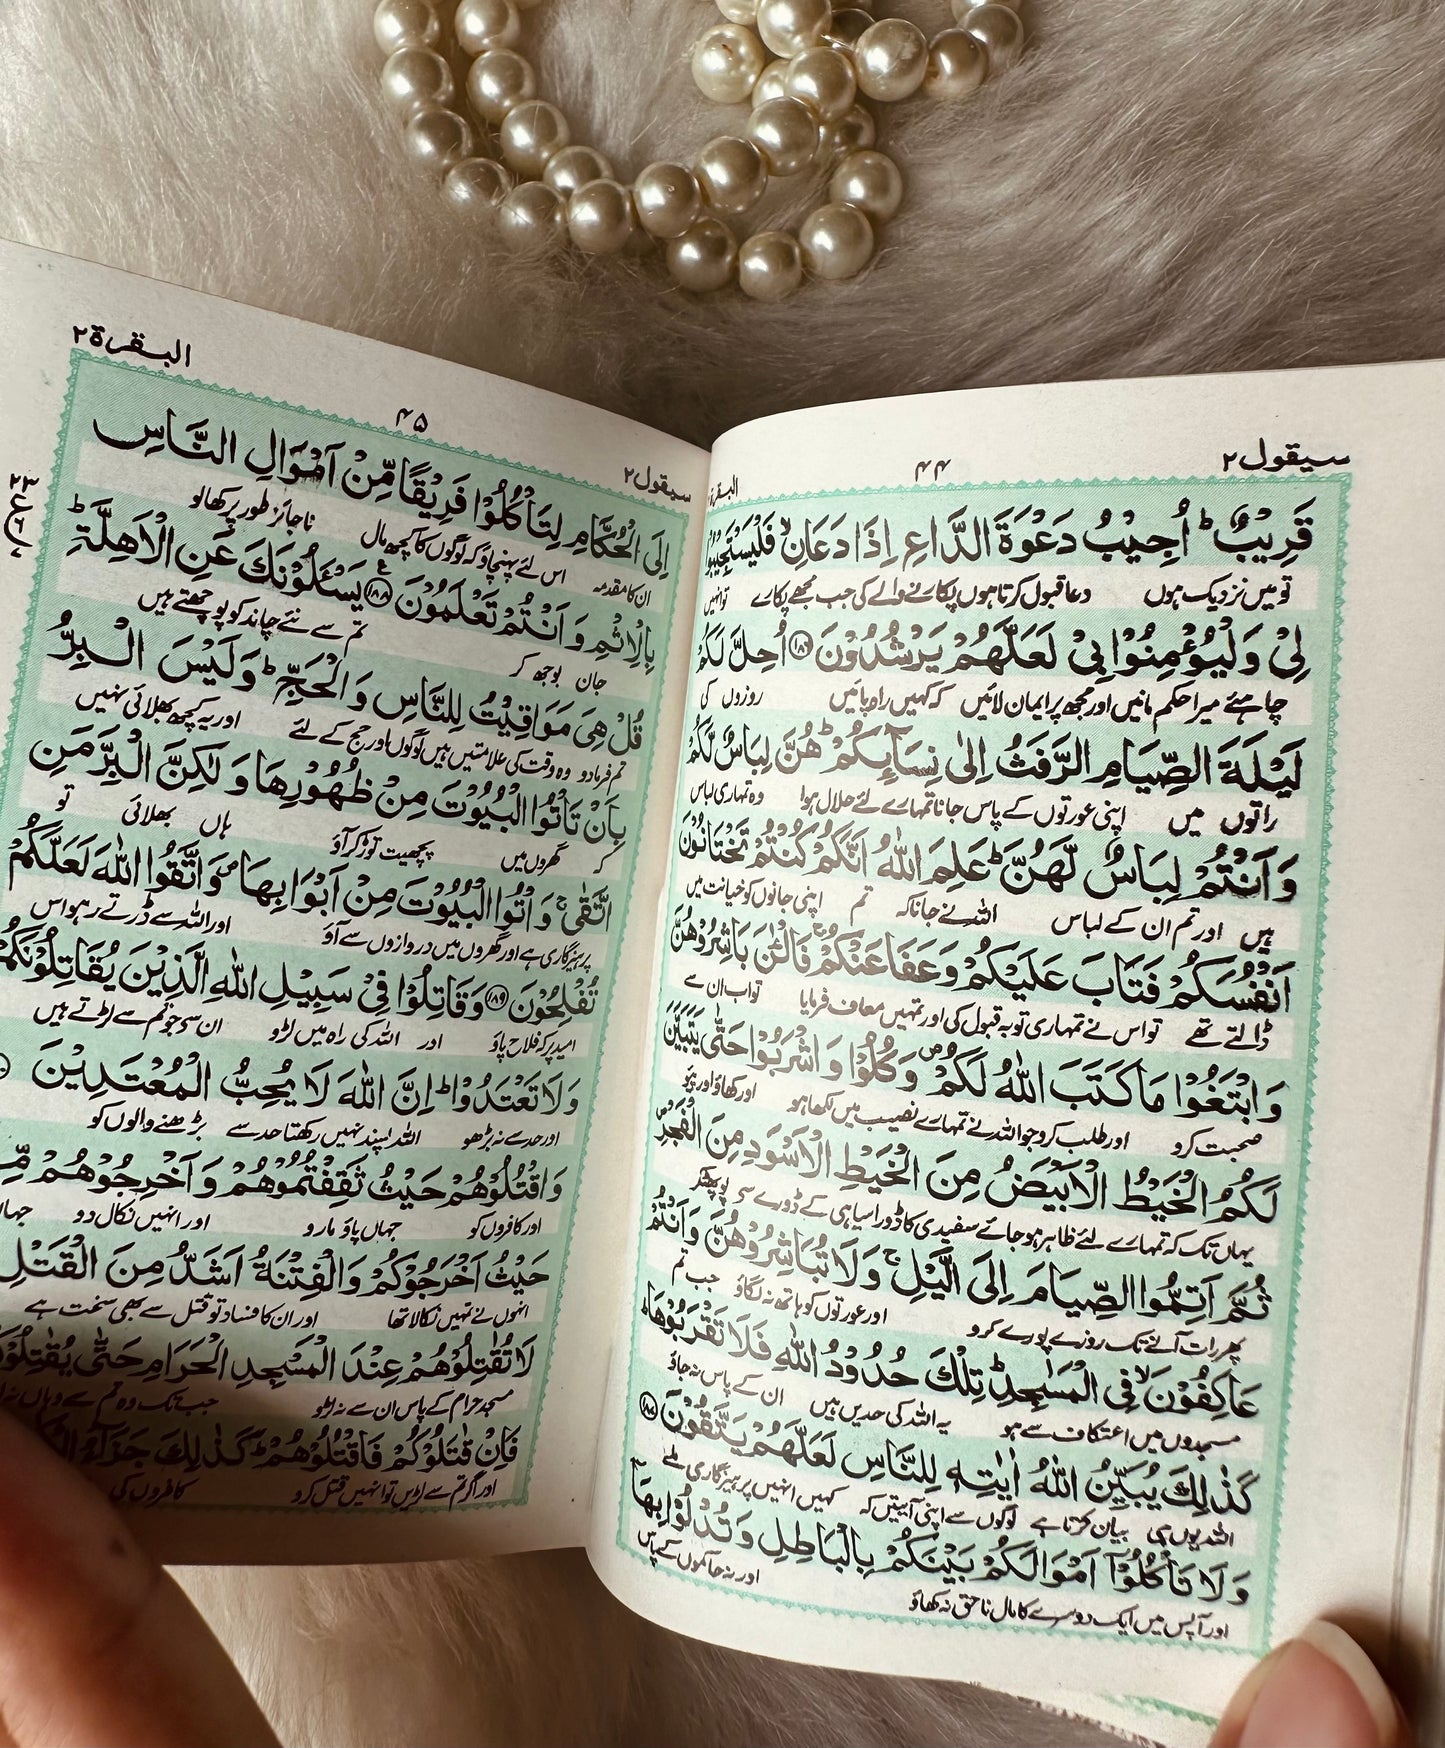 سیقول ۲
۴۴
البقرة
قَرِيْبٌ ؕ اُجِيْبُ دَعْوَةَ الدَّاعِ اِذَا دَعَانِ ۙ فَلْيَسْتَجِيْبُوْا
تو میں نزدیک ہوں دعا قبول کرتا ہوں پکارنے والے کی جب مجھے پکارے تو انہیں
لِيْ وَلْيُؤْمِنُوْا بِيْ لَعَلَّهُمْ يَرْشُدُوْنَ ۝۱۸۶ اُحِلَّ لَكُمْ
چاہئے میرا حکم مانیں اور مجھ پر ایمان لائیں کہ کہیں راہ پائیں روزوں کی
لَيْلَةَ الصِّيَامِ الرَّفَثُ اِلٰى نِسَآئِكُمْ ؕ هُنَّ لِبَاسٌ لَّكُمْ
راتوں میں اپنی عورتوں کے پاس جانا تمہارے لئے حلال ہوا وہ تمہاری لباس
وَاَنْتُمْ لِبَاسٌ لَّهُنَّ ؕ عَلِمَ اللّٰهُ اَنَّكُمْ كُنْتُمْ تَخْتَانُوْنَ
ہیں اور تم ان کے لباس اللہ نے جانا کہ تم اپنی جانوں کو خیانت میں
اَنْفُسَكُمْ فَتَابَ عَلَيْكُمْ وَعَفَا عَنْكُمْ ۚ فَالْـٰٔنَ بَاشِرُوْهُنَّ
ڈالتے تھے تو اس نے تمہاری توبہ قبول کی اور تمہیں معاف فرمایا تو اب ان سے
وَابْتَغُوْا مَا كَتَبَ اللّٰهُ لَكُمْ ۪ وَكُلُوْا وَاشْرَبُوْا حَتّٰى يَتَبَيَّنَ
صحبت کرو اور طلب کرو جو اللہ نے تمہارے نصیب میں لکھا ہو اور کھاؤ اور پیو
لَكُمُ الْخَيْطُ الْاَبْيَضُ مِنَ الْخَيْطِ الْاَسْوَدِ مِنَ الْفَجْرِ
یہاں تک کہ تمہارے لئے ظاہر ہو جائے سفیدی کا ڈورا سیاہی کے ڈورے سے پو پھٹ کر
ثُمَّ اَتِمُّوا الصِّيَامَ اِلَى الَّيْلِ ۚ وَلَا تُبَاشِرُوْهُنَّ وَاَنْتُمْ
پھر رات آنے تک روزے پورے کرو اور عورتوں کو ہاتھ نہ لگاؤ جب تم
عٰكِفُوْنَ ۙ فِي الْمَسٰجِدِ ؕ تِلْكَ حُدُوْدُ اللّٰهِ فَلَا تَقْرَبُوْهَا ؕ
مسجدوں میں اعتکاف سے ہو یہ اللہ کی حدیں ہیں ان کے پاس نہ جاؤ
كَذٰلِكَ يُبَيِّنُ اللّٰهُ اٰيٰتِهٖ لِلنَّاسِ لَعَلَّهُمْ يَتَّقُوْنَ ۝۱۸۷
اللہ یوں ہی بیان کرتا ہے لوگوں سے اپنی آیتیں کہ کہیں انہیں پرہیزگاری ملے
وَلَا تَاْكُلُوْٓا اَمْوَالَكُمْ بَيْنَكُمْ بِالْبَاطِلِ وَتُدْلُوْا بِهَآ
اور آپس میں ایک دوسرے کا مال ناحق نہ کھاؤ اور نہ حاکموں کے پاس
سیقول ۲
۴۵
البقرة ۲
اِلَى الْحُكَّامِ لِتَاْكُلُوْا فَرِيْقًا مِّنْ اَمْوَالِ النَّاسِ
ان کا مقدمہ اس لئے پہنچاؤ کہ لوگوں کا کچھ مال ناجائز طور پر کھا لو
بِالْاِثْمِ وَاَنْتُمْ تَعْلَمُوْنَ ۝۱۸۸ يَسْـَٔلُوْنَكَ عَنِ الْاَهِلَّةِ ؕ
جان بوجھ کر تم سے نئے چاند کو پوچھتے ہیں
قُلْ هِيَ مَوَاقِيْتُ لِلنَّاسِ وَالْحَجِّ ؕ وَلَيْسَ الْبِرُّ
تم فرما دو وہ وقت کی علامتیں ہیں لوگوں اور حج کے لئے اور یہ کچھ بھلائی نہیں
بِاَنْ تَاْتُوا الْبُيُوْتَ مِنْ ظُهُوْرِهَا وَلٰكِنَّ الْبِرَّ مَنِ
کہ گھروں میں پچھیت توڑ کر آؤ ہاں بھلائی تو
اتَّقٰى ۚ وَاْتُوا الْبُيُوْتَ مِنْ اَبْوَابِهَا ۪ وَاتَّقُوا اللّٰهَ لَعَلَّكُمْ
پرہیزگاری ہے اور گھروں میں دروازوں سے آؤ اور اللہ سے ڈرتے رہو اس
تُفْلِحُوْنَ ۝۱۸۹ وَقَاتِلُوْا فِيْ سَبِيْلِ اللّٰهِ الَّذِيْنَ يُقَاتِلُوْنَكُمْ
امید پر کہ فلاح پاؤ اور اللہ کی راہ میں لڑو ان سے جو تم سے لڑتے ہیں
وَلَا تَعْتَدُوْا ؕ اِنَّ اللّٰهَ لَا يُحِبُّ الْمُعْتَدِيْنَ
اور حد سے نہ بڑھو اللہ پسند نہیں رکھتا حد سے بڑھنے والوں کو
وَاقْتُلُوْهُمْ حَيْثُ ثَقِفْتُمُوْهُمْ وَاَخْرِجُوْهُمْ مِّنْ
اور کافروں کو جہاں پاؤ مارو اور انہیں نکال دو جہاں
حَيْثُ اَخْرَجُوْكُمْ وَالْفِتْنَةُ اَشَدُّ مِنَ الْقَتْلِ
انہوں نے تمہیں نکالا تھا اور ان کا فساد تو قتل سے بھی سخت ہے
لَا تُقٰتِلُوْهُمْ عِنْدَ الْمَسْجِدِ الْحَرَامِ حَتّٰى يُقٰتِلُوْ
مسجد حرام کے پاس ان سے نہ لڑو جب تک وہ تم سے وہاں نہ
فَاِنْ قٰتَلُوْكُمْ فَاقْتُلُوْهُمْ ؕ كَذٰلِكَ جَزَآءُ
اور اگر تم سے لڑیں تو انہیں قتل کرو کافروں کی